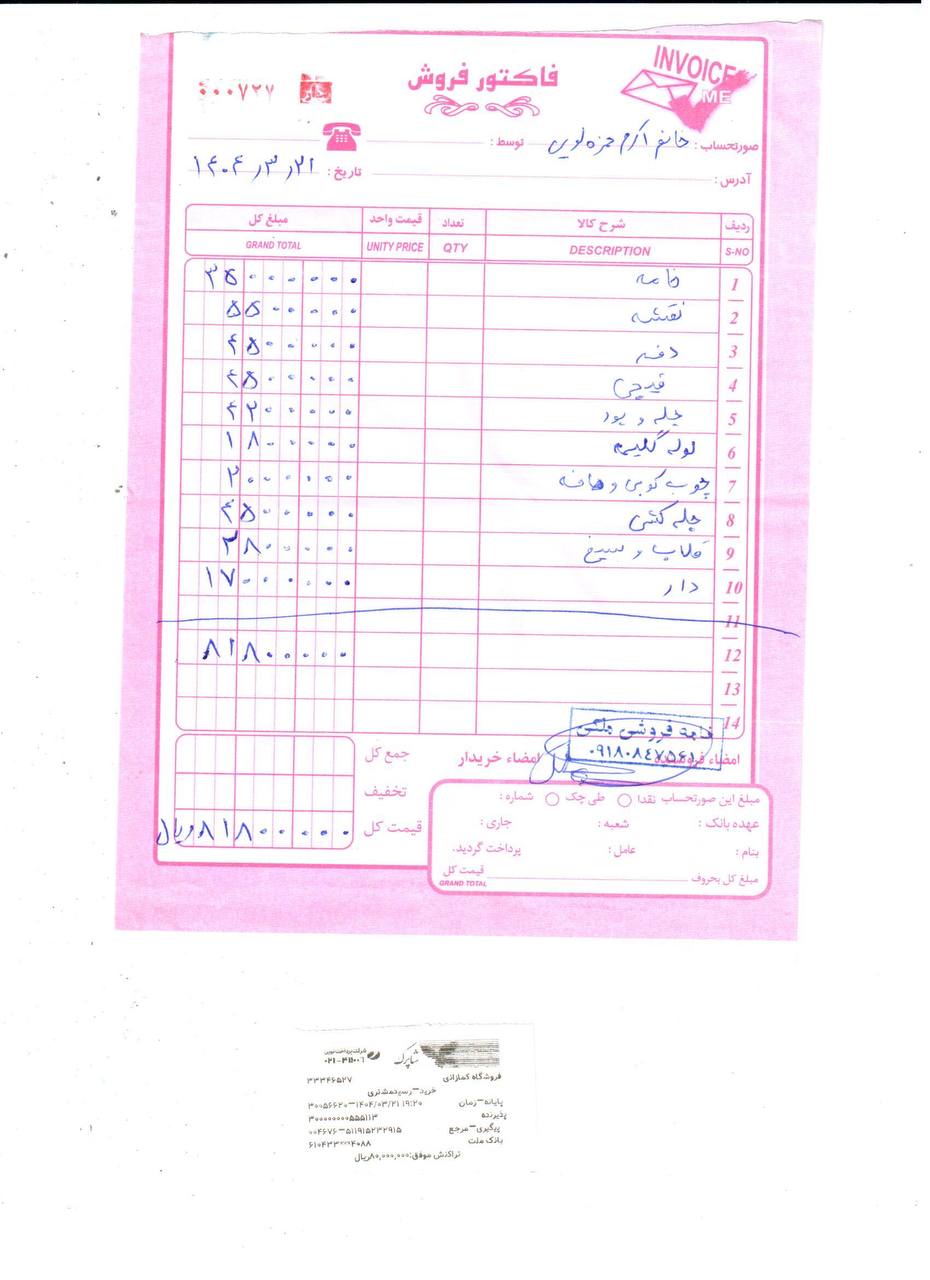 INVOICE
ME
فاکتور فروش
۰۰۰۷۲۷
صورتحساب : خانم اکرم حمزه لویی توسط :
آدرس : تاریخ : ۱۴۰۴/۳/۲۱
ردیف شرح کالا تعداد قیمت واحد مبلغ کل
S-NO DESCRIPTION QTY UNITY PRICE GRAND TOTAL
1 خامه ۳۵۰۰۰۰۰۰
2 نقشه ۵۵۰۰۰۰۰
3 دفه ۴۵۰۰۰۰۰
4 قیچی ۴۵۰۰۰۰۰
5 چله و پود ۴۲۰۰۰۰۰
6 لوله گلیم ۱۸۰۰۰۰۰
7 چوب کوبی و هافه ۲۰۰۰۰۰۰
8 چله کشی ۴۵۰۰۰۰۰
9 قلاب و سیخ ۲۸۰۰۰۰۰
10 دار ۱۷۰۰۰۰۰۰
11
12 ۸۱۸۰۰۰۰۰
13
14
خامه فروشی ملکی
۰۹۱۸۰۸۴۷۵۶۱
امضاء فروشنده امضاء خریدار جمع کل
تخفیف
قیمت کل ۸۱۸۰۰۰۰۰ ریال
مبلغ این صورتحساب نقدا طی چک شماره :
عهده بانک : شعبه : جاری :
بنام : عامل : پرداخت گردید.
مبلغ کل بحروف قیمت کل
GRAND TOTAL
شاپرک
شرکت پرداخت نوین
۰۲۱-۴۱۱۰۰۶
فروشگاه کمازانی ۳۳۳۴۶۵۲۷
خرید-رسیدمشتری
پایانه-زمان ۱۴۰۴/۰۳/۲۱ ۱۹:۲۰-۳۰۰۵۶۶۲۰
پذیرنده ۳۰۰۰۰۰۰۰۰۵۵۵۱۱۳
پیگیری-مرجع ۵۱۱۹۱۵۲۳۲۹۱۵-۰۰۴۶۷۶
بانک ملت ۶۱۰۴۳۳***۴۰۸۸
تراکنش موفق:۸۰,۰۰۰,۰۰۰ریال